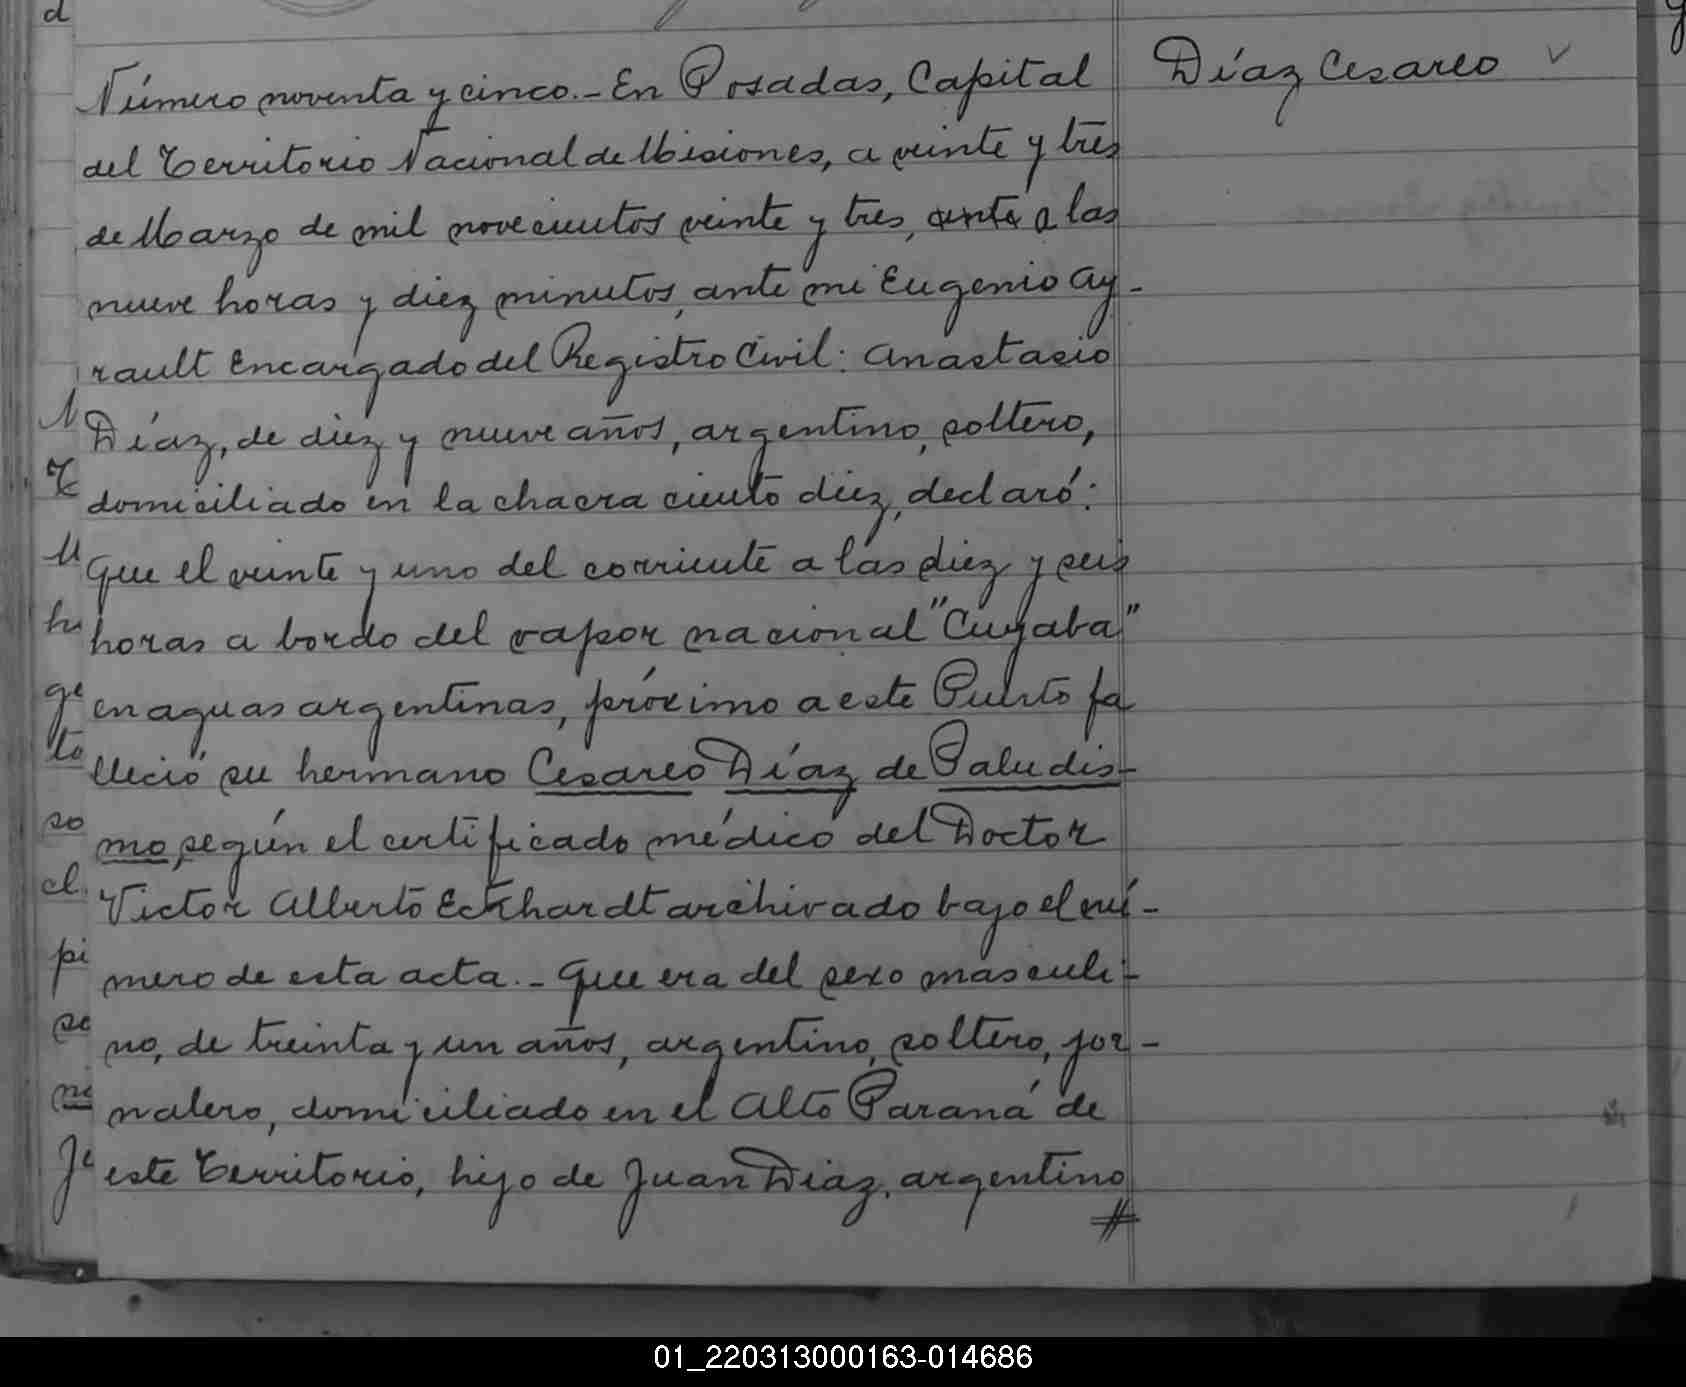 d
Número noventa y cinco.- En Posadas, Capital
Díaz Cesareo
del Territorio Nacional de Misiones, a veinte y tres
de Marzo de mil novecientos veinte y tres, ante a las
nueve horas y diez minutos, ante mi Eugenio Ay-
rault Encargado del Registro Civil: Anastasio
Díaz, de diez y nueve años, argentino, soltero,
domiciliado en la chacra ciento diez, declaró:
Que el veinte y uno del corriente a las diez y seis
horas a bordo del vapor nacional "Cuyaba"
en aguas argentinas, próximo a este Puerto fa
lleció su hermano Cesareo Díaz de Paludis-
mo, según el certificado médico del Doctor
Victor Alberto Eckhardt archivado bajo el nú-
mero de esta acta.- Que era del sexo masculi-
no, de treinta y un años, argentino, soltero, jor-
nalero, domiciliado en el Alto Paraná de
este Territorio, hijo de Juan Diaz, argentino
#
01_220313000163-014686